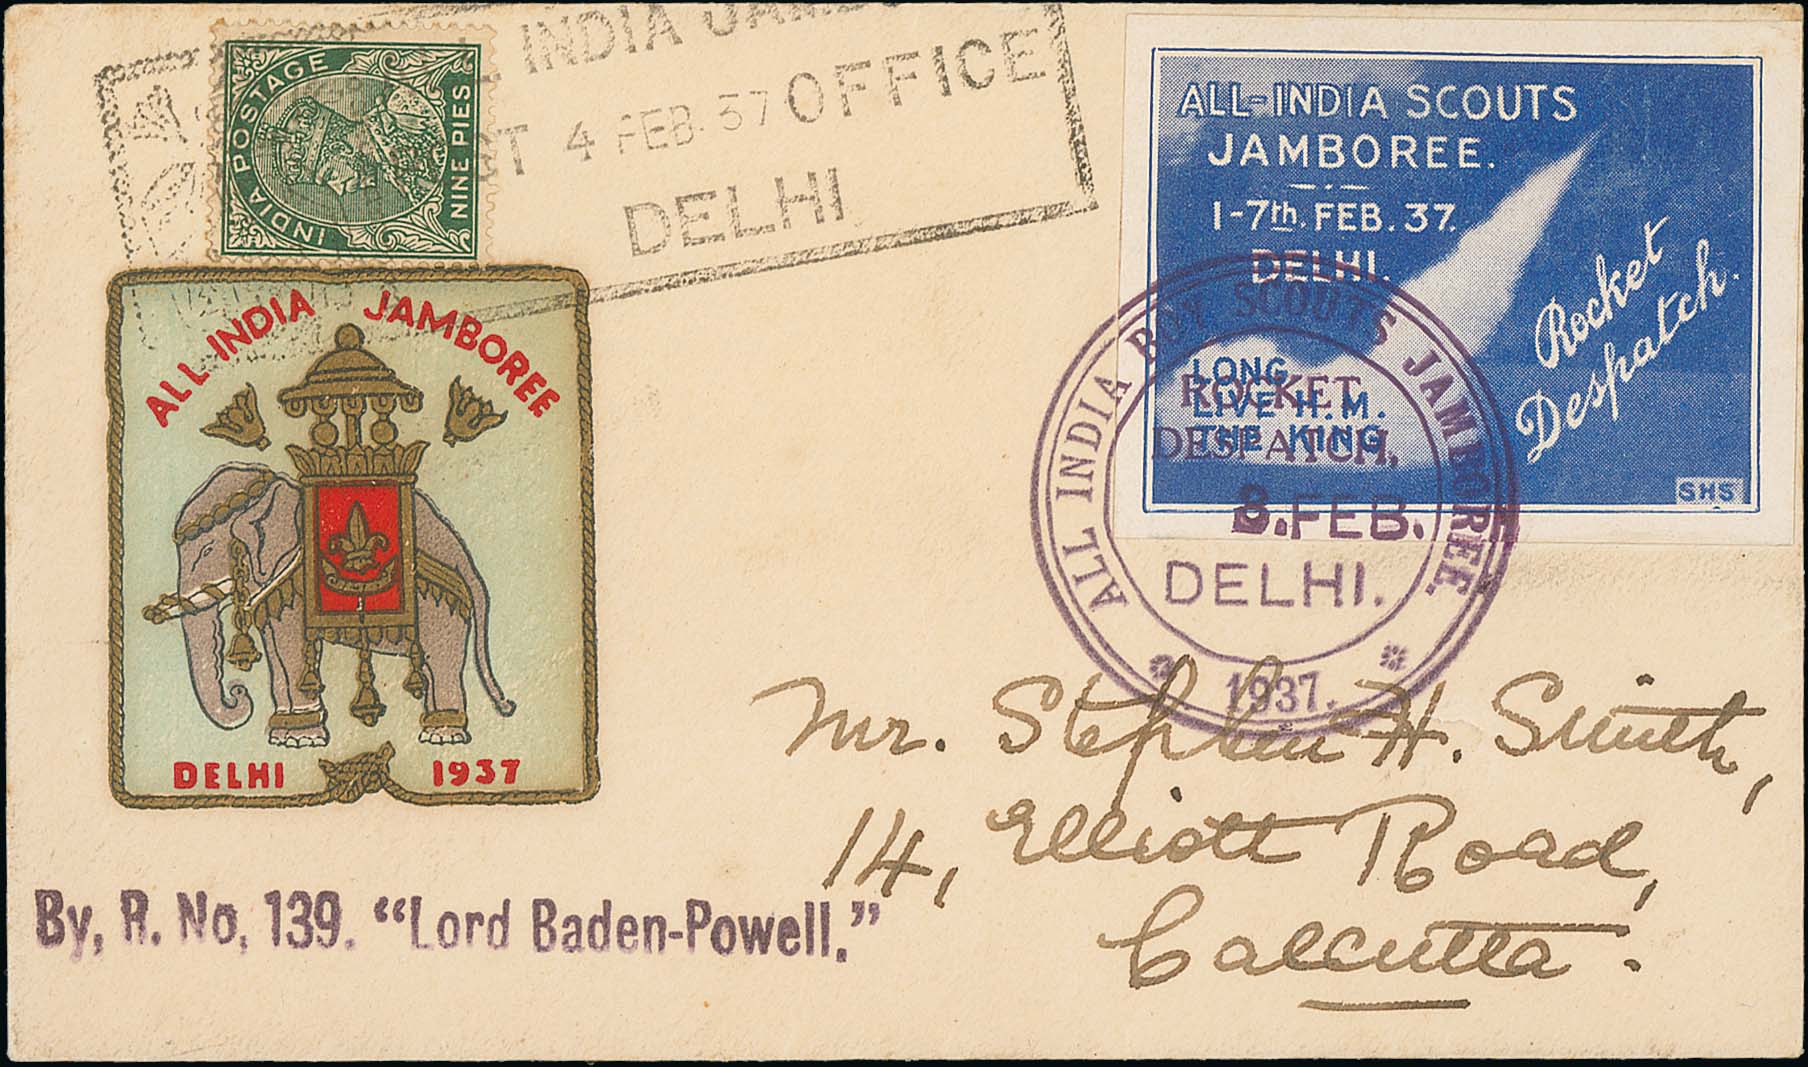 INDIA POSTAGE
NINE PIES
INDIA
4 FEB. 37 OFFICE
DELHI
ALL-INDIA SCOUTS
JAMBOREE.
1-7th. FEB. 37.
DELHI.
Rocket
Despatch.
LONG
LIVE H.M.
THE KING
SHS
ALL INDIA BOY SCOUTS JAMBOREE.
ROCKET
DESPATCH,
3.FEB.
DELHI.
1937.
ALL INDIA JAMBOREE
DELHI 1937
Mr. Stephen H. Smith,
14, Elliott Road,
Calcutta.
By, R. No, 139. "Lord Baden-Powell."